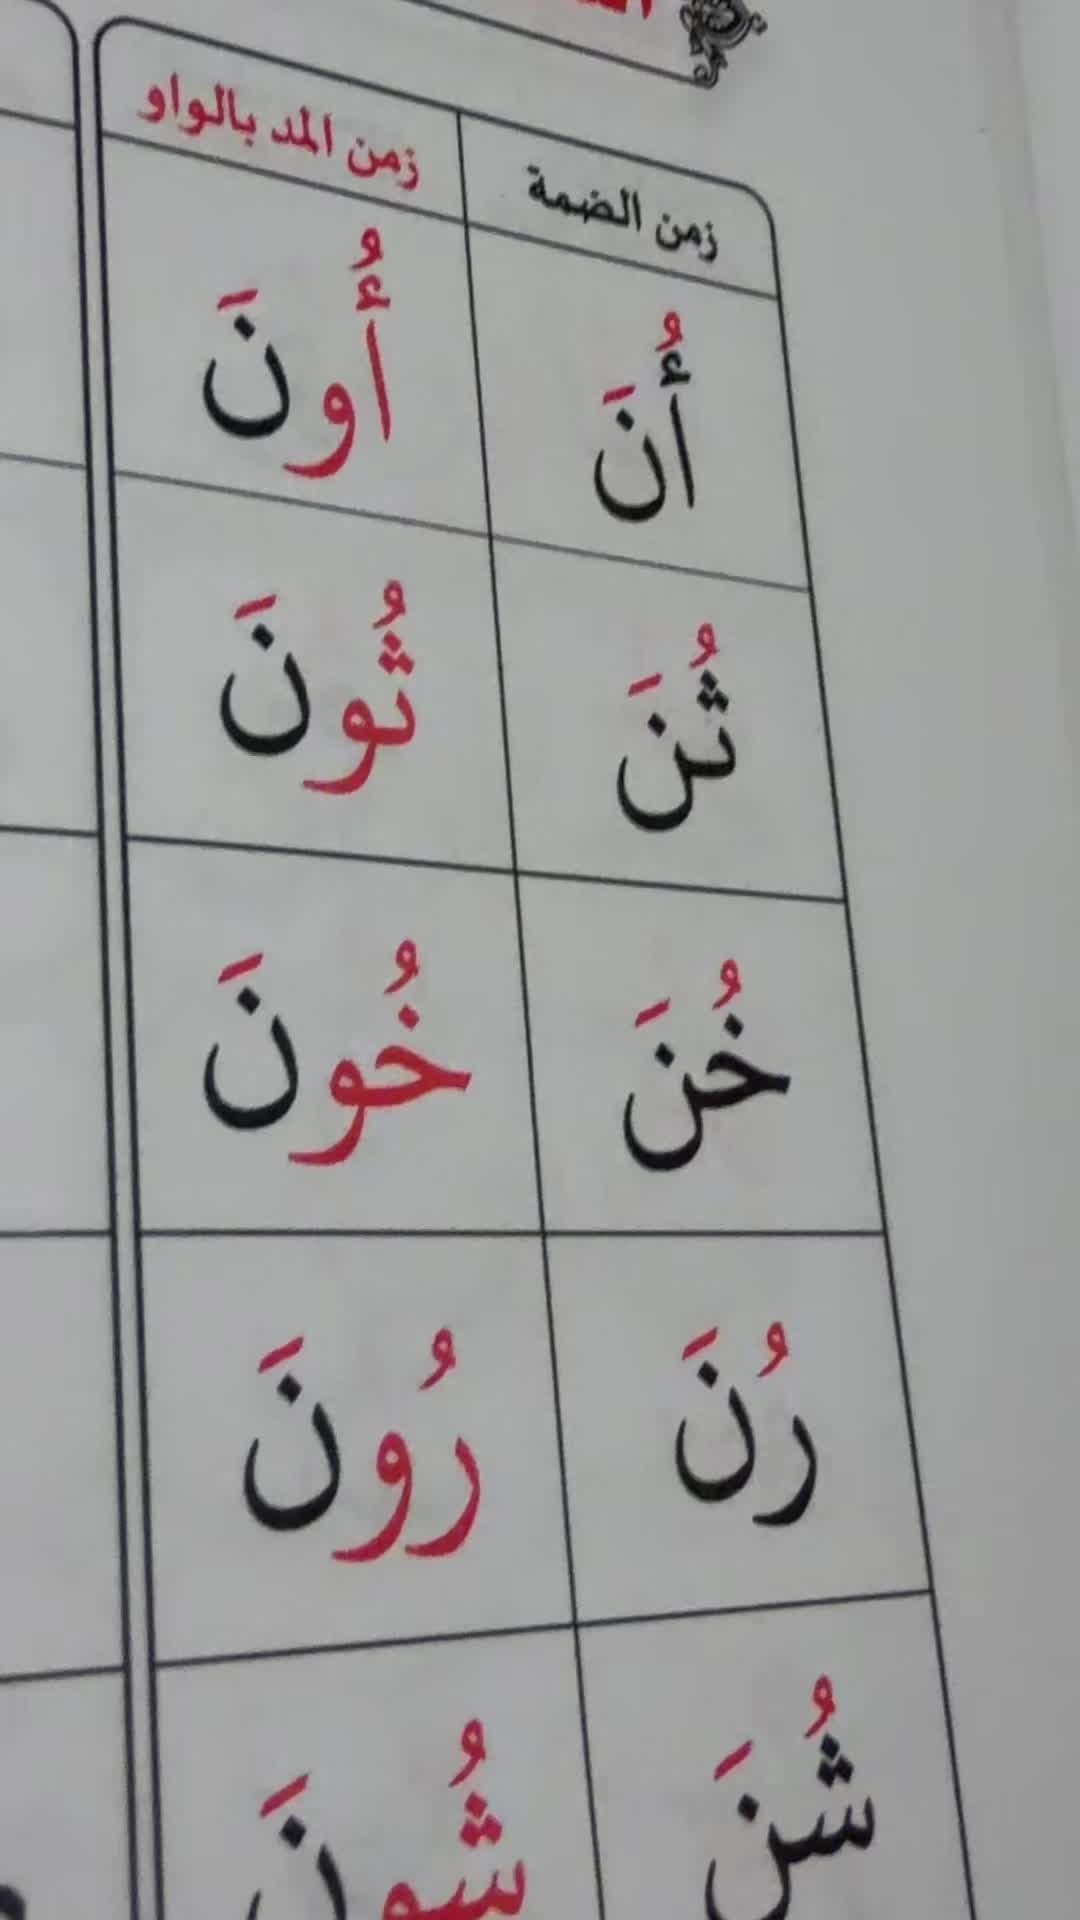 زمن الضمة زمن المد بالواو
أُنَ أُونَ
ثُنَ ثُونَ
خُنَ خُونَ
رُنَ رُونَ
شُنَ شُونَ